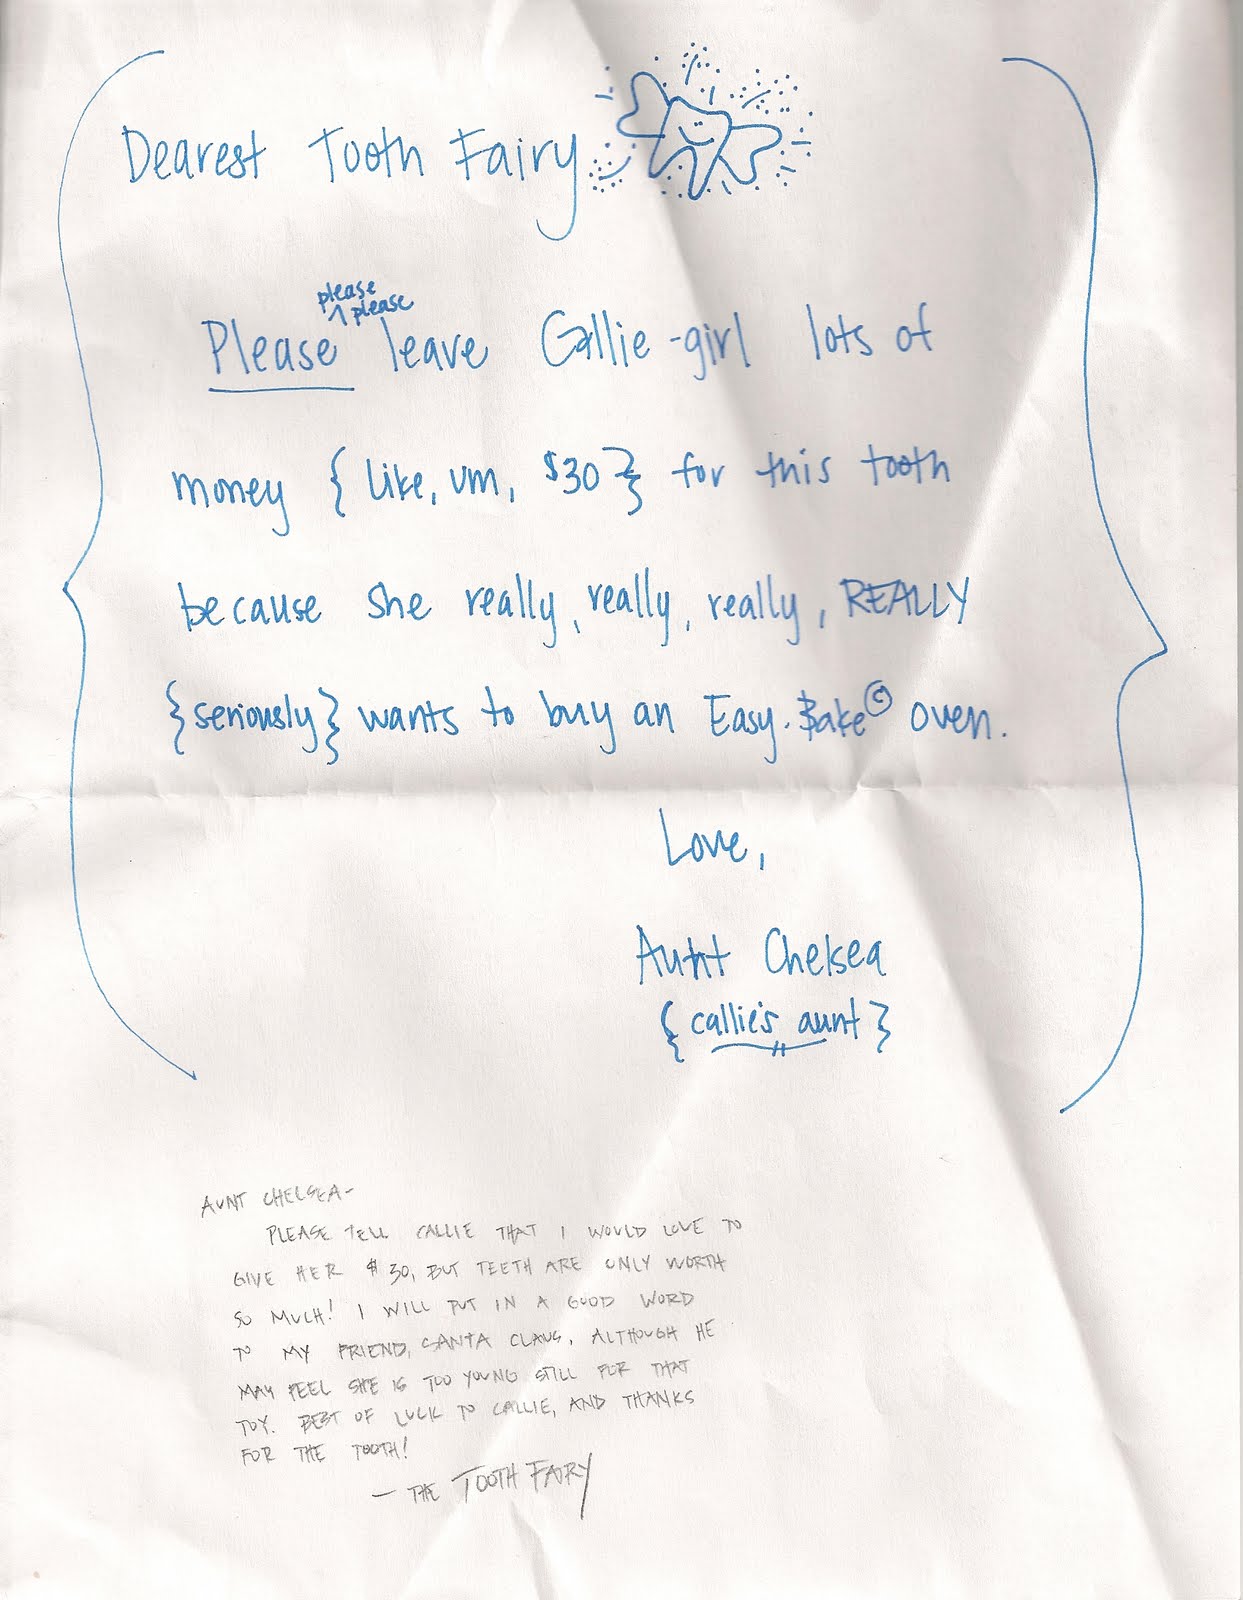 Dearest Tooth Fairy
please
please
Please ^ leave Callie-girl lots of
money { like, um, $30 } for this tooth
because she really, really, really, REALLY
{seriously} wants to buy an Easy·Bake © oven.
Love,
Aunt Chelsea
{ callie's aunt }
AUNT CHELSEA-
PLEASE TELL CALLIE THAT I WOULD LOVE TO
GIVE HER $30, BUT TEETH ARE ONLY WORTH
SO MUCH! I WILL PUT IN A GOOD WORD
TO MY FRIEND, SANTA CLAUS, ALTHOUGH HE
MAY FEEL SHE IS TOO YOUNG STILL FOR THAT
TOY. BEST OF LUCK TO CALLIE, AND THANKS
FOR THE TOOTH!
— THE TOOTH FAIRY